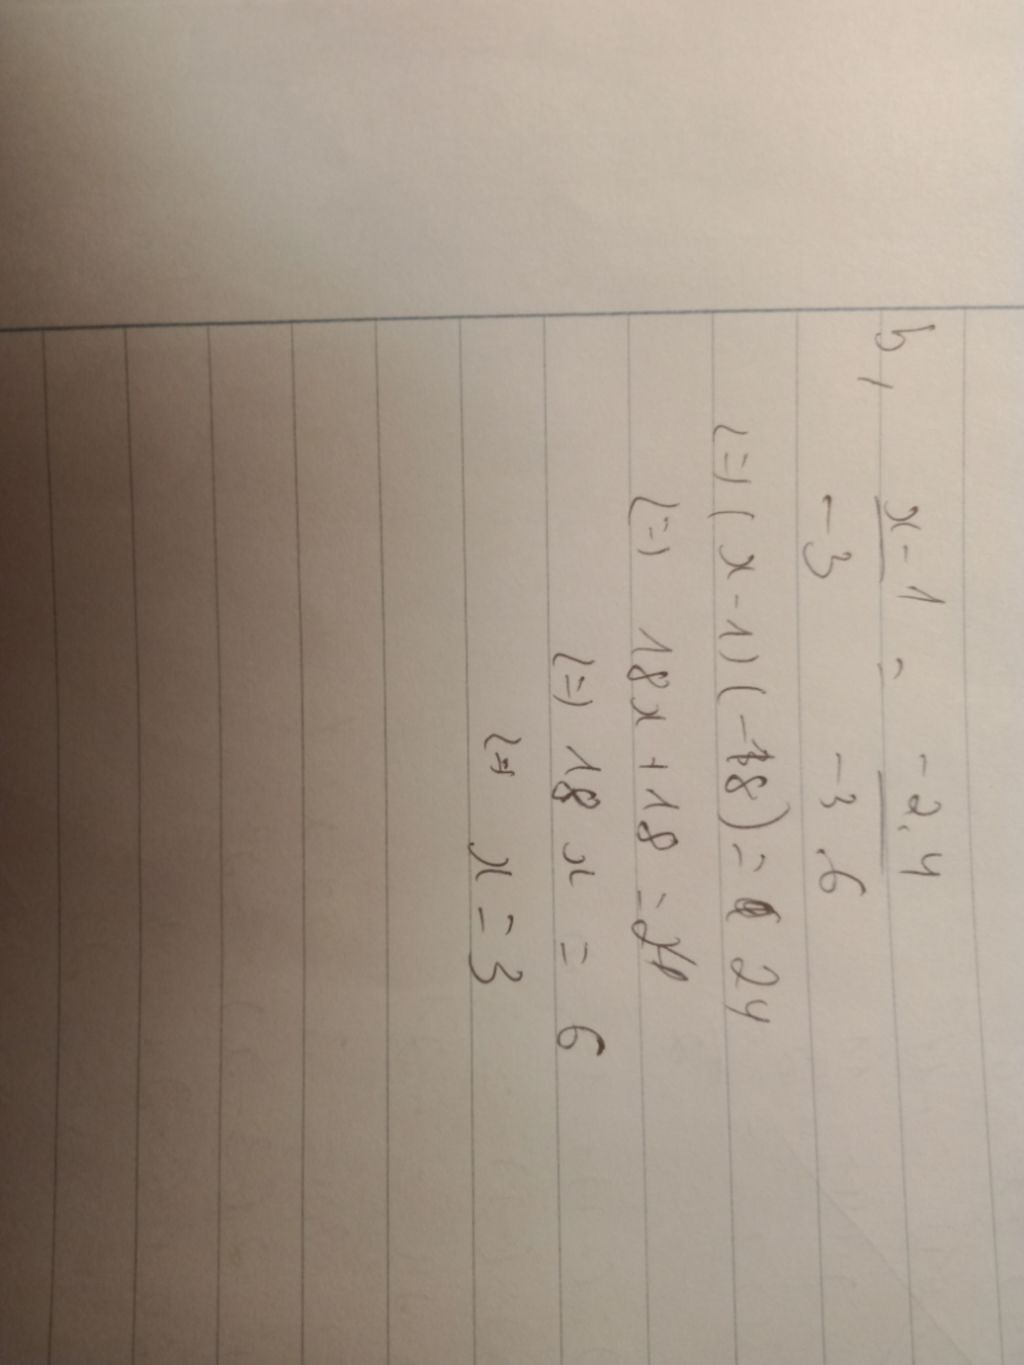 b, x-1 = -2.4
-3 -3.6
(=) (x-1)(-18) = 24
(=) 18x+18 = 24
(=) 18x = 6
(=) x = 3